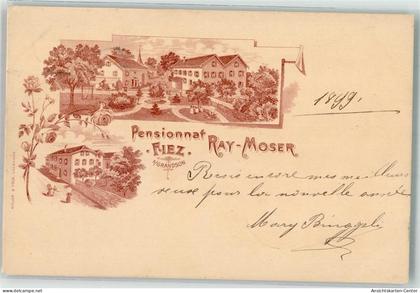 1899.
Pensionnat
RAY-MOSER
FIEZ
s/GRANDSON
Reçois encore mes meilleurs
vœux pour la nouvelle année
Mary Binggeli
Ansichtskarten-Center